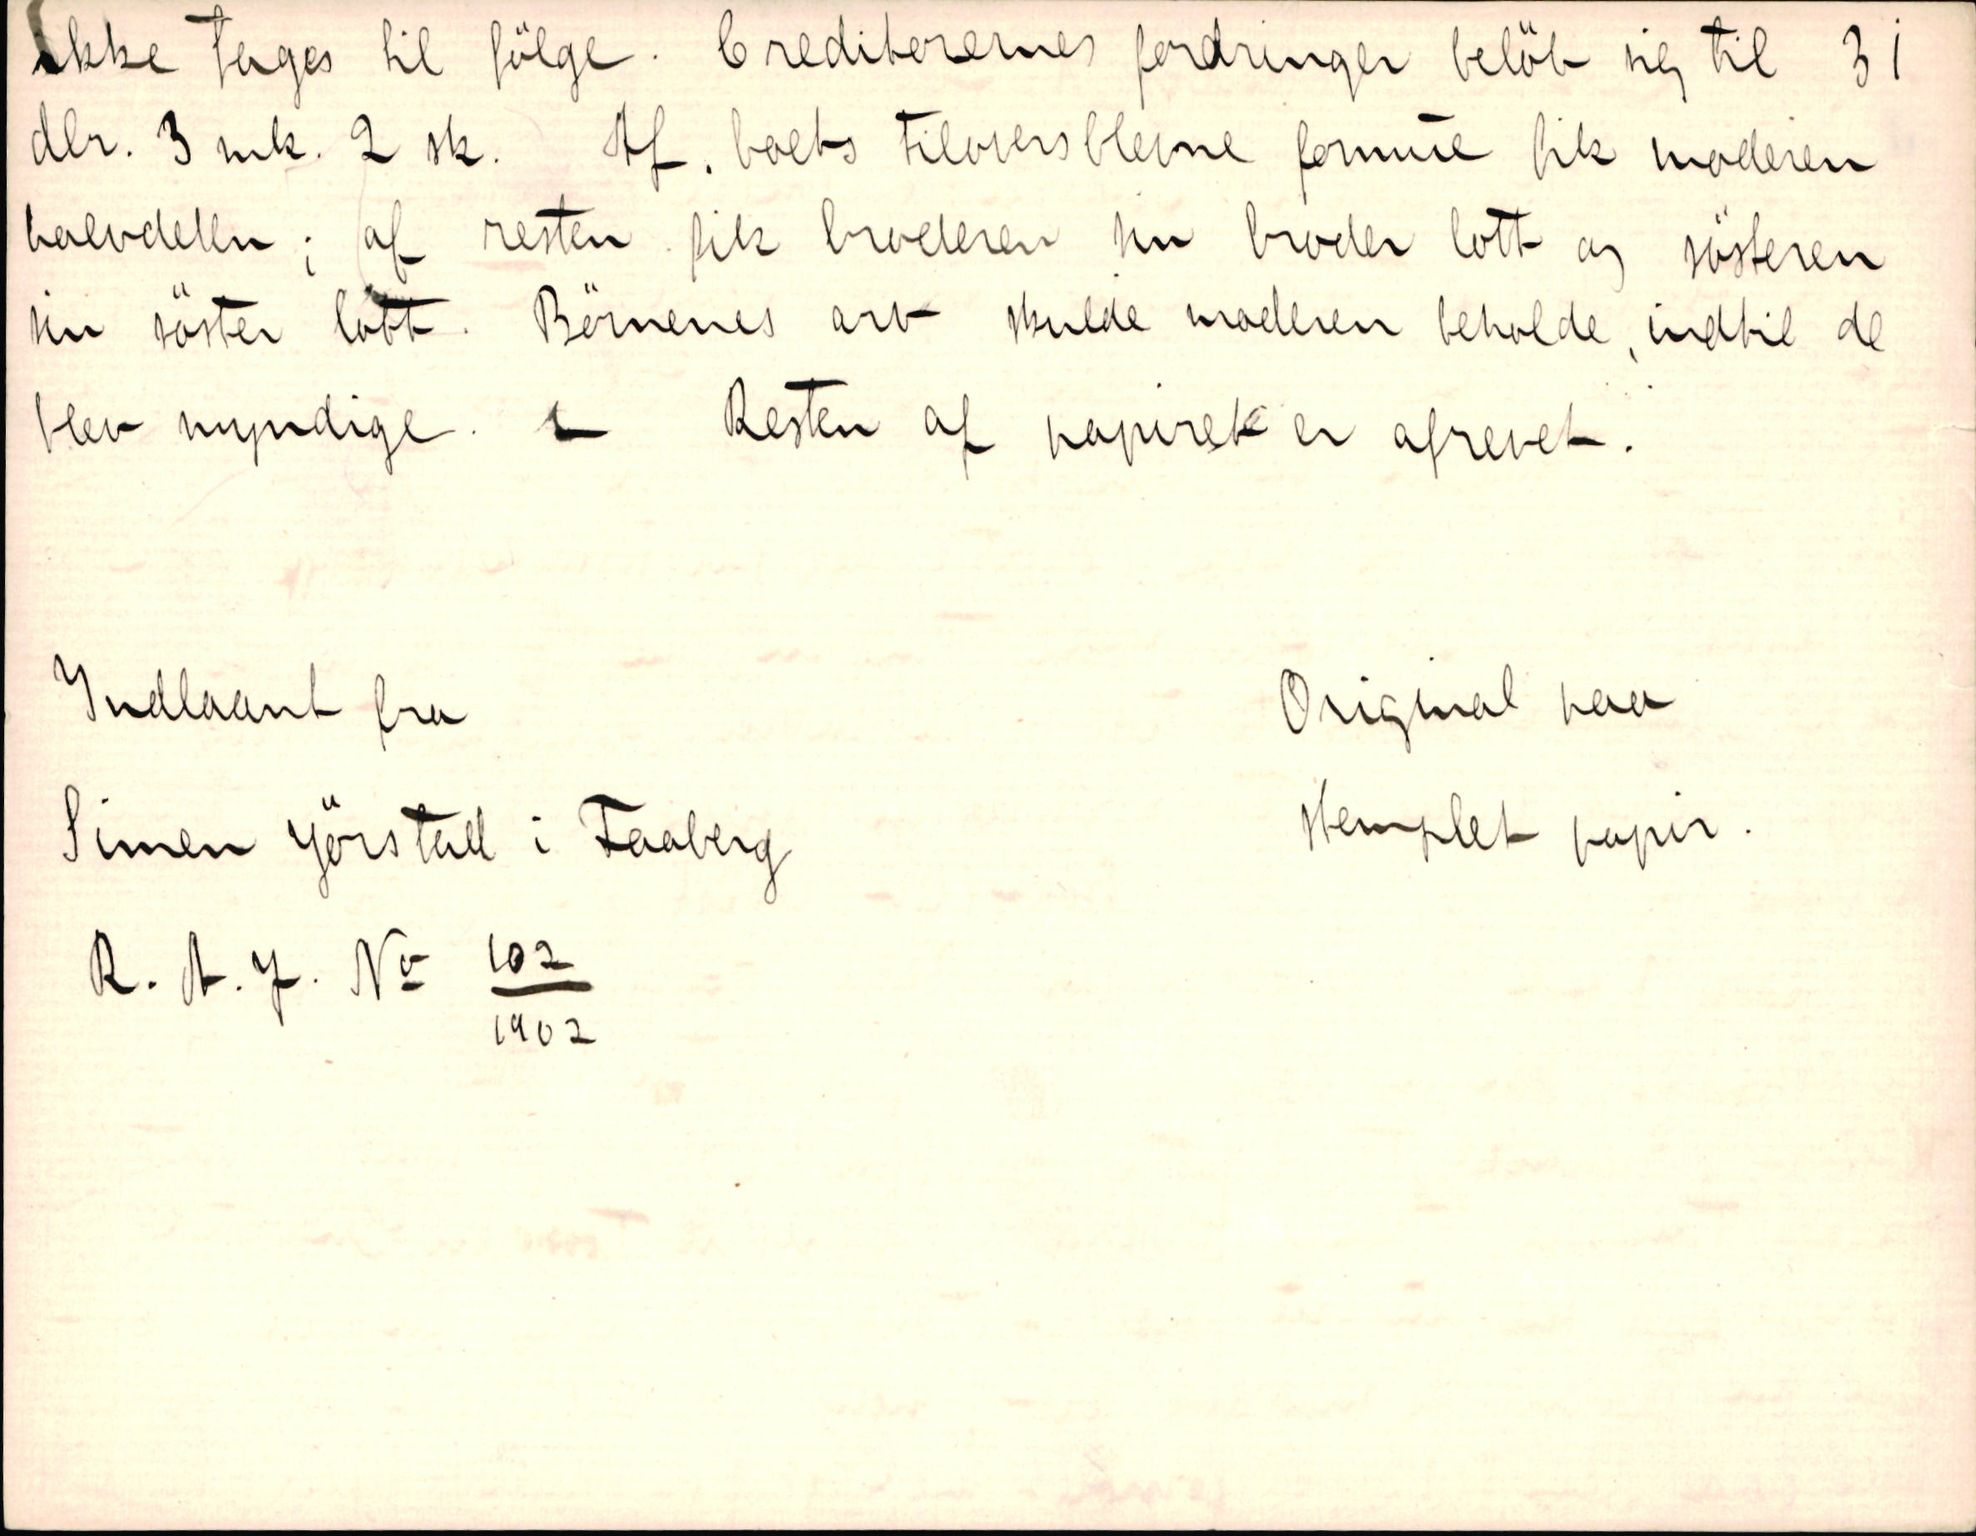 ikke tages til fölge. Creditorernes fordringer belöb sig til 31
dlr. 3 mk. 2 sk. Af boets tiloversblevne formue fik moderen
halvdelen; af resten fik broderen sin broder lott og sösteren
sin söster lott. Börnenes arv skulde moderen beholde, indtil de
blev myndige. — Resten af papiret er afrevet.
Indlaant fra
Simen Jörstad i Faaberg
R. A. J. No 102/1902
Original paa
stemplet papir.